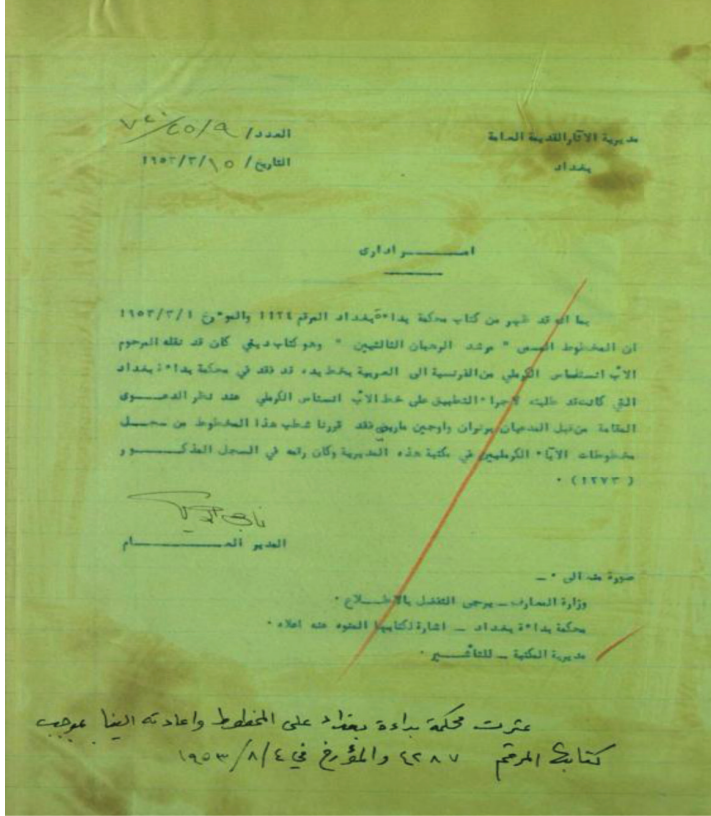 مديرية الآثار القديمة العامة
بغداد
العدد/
التاريخ/ ١٥/٣/١٩٥٣
امـــر اداری
بما انه قد ظهر من كتاب محكمة بداءة بغداد المرقم ١١٢٤ والمؤرخ ١/٣/١٩٥٣
ان المخطوط المسمى " مرشد الرهبان الثالثيين " وهو كتاب ديني كان قد نقله المرحوم
الاب انستاس الكرملي من الفرنسية الى العربية بخط يده قد فقد في محكمة بداءة بغداد
التي كانت قد طلبته لاجراء التطبيق على خط الاب انستاس الكرملي عند نظر الدعـــوى
المقامة من قبل المدعيان واوجين فقد قررنا شطب هذا المخطوط من سجـــل
مخطوطات الآباء الكرمليين في مكتبة هذه المديرية وكان رقمه في السجل المذكـــور
( ١٢٧٣ ) ٠
المدير العـــــــــام
صورة منه الى ٠ ــ
وزارة المعارف ــ يرجى التفضل بالاطـــلاع ٠
محكمة بداءة بغداد ــ اشارة لكتابها المنوه عنه اعلاه ٠
مديرية المكتبة ــ للتأشـــير ٠
عثرت محكمة بداءة بغداد على المخطوط واعادته الينا بموجب
كتابها المرقم ٤٢٨٧ والمؤرخ في ٤/٨/١٩٥٣